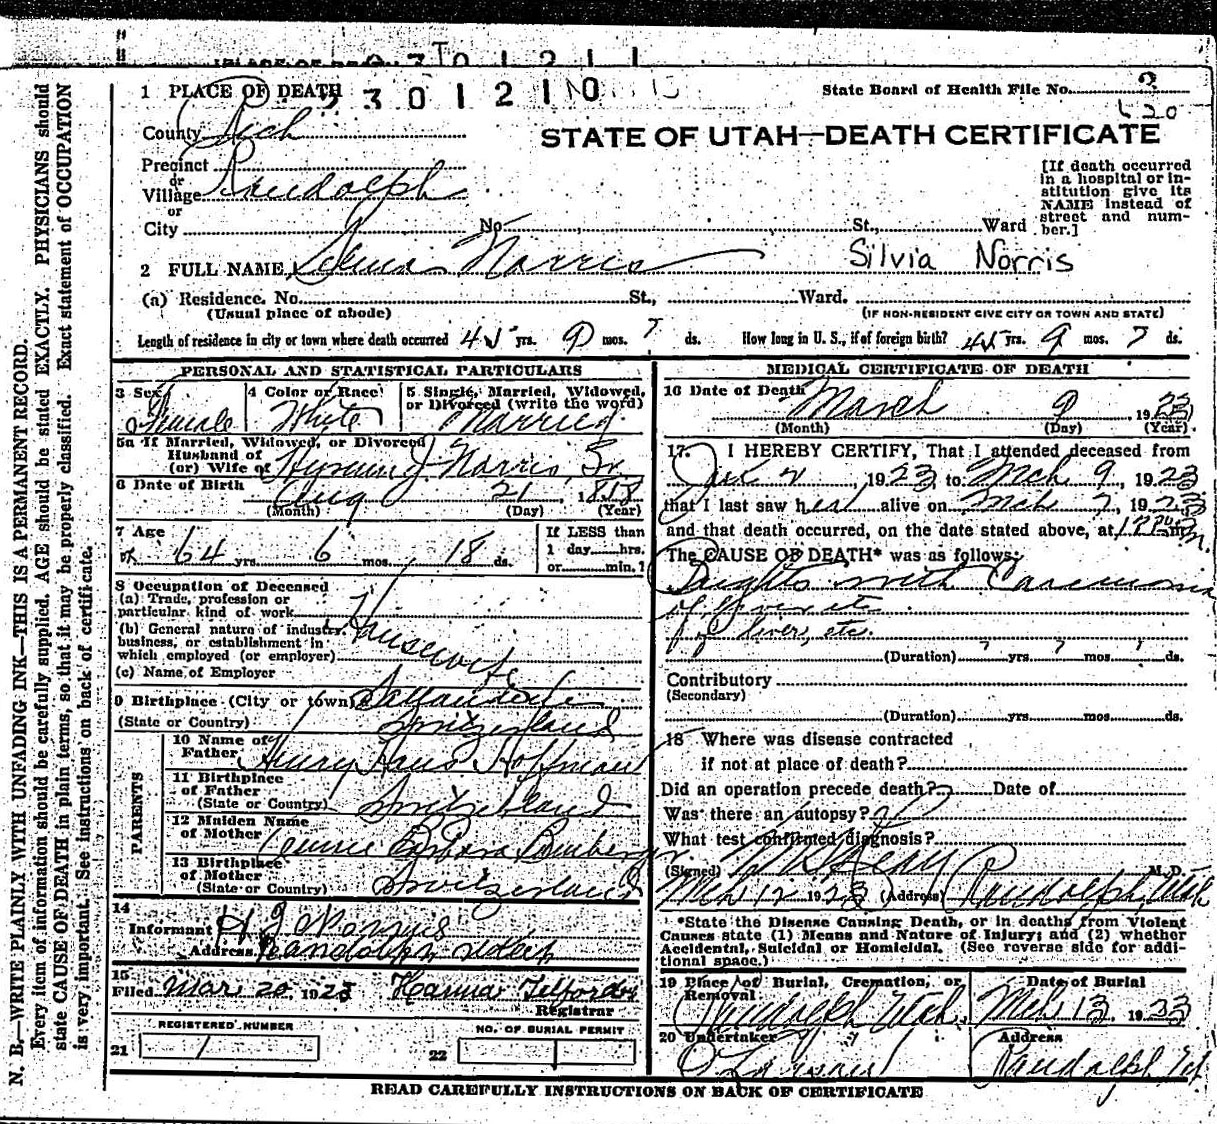 1 PLACE OF DEATH
2301210
State Board of Health File No. 3
County Rich
620
STATE OF UTAH—DEATH CERTIFICATE
Precinct
or
Village Randolph
or
City No. St., Ward
[If death occurred
in a hospital or in-
stitution give its
NAME instead of
street and num-
ber.]
2 FULL NAME Norris Silvia Norris
(a) Residence. No. St., Ward.
(Usual place of abode) (IF NON-RESIDENT GIVE CITY OR TOWN AND STATE)
Length of residence in city or town where death occurred 45 yrs. 9 mos. 7 ds. How long in U. S., if of foreign birth? 45 yrs. 9 mos. 7 ds.
PERSONAL AND STATISTICAL PARTICULARS
3 Sex Female
4 Color or Race White
5 Single, Married, Widowed,
or Divorced (write the word)
Married
5a If Married, Widowed, or Divorced
Husband of
(or) Wife of Hyrum J Norris Sr
6 Date of Birth Aug 21, 1858
(Month) (Day) (Year)
7 Age
64 yrs. 6 mos. 18 ds.
If LESS than
1 day....hrs.
or....min.?
8 Occupation of Deceased
(a) Trade, profession or
particular kind of work Housewife
(b) General nature of industry,
business, or establishment in
which employed (or employer)
(c) Name of Employer
9 Birthplace (City or town)
(State or Country) Switzerland
PARENTS
10 Name of
Father Henry Hans Hoffman
11 Birthplace
of Father
(State or Country) Switzerland
12 Maiden Name
of Mother Barbara
13 Birthplace
of Mother
(State or Country) Switzerland
14
Informant H J Norris
Address Randolph Utah
15
Filed Mar 20, 1923 Hanna Telford
Registrar
REGISTERED NUMBER
21 1
NO. OF BURIAL PERMIT
22 1
MEDICAL CERTIFICATE OF DEATH
16 Date of Death March 9 1923
(Month) (Day) (Year)
17. I HEREBY CERTIFY, That I attended deceased from
Jan 2, 1923, to Mch 9, 1923
that I last saw her alive on Mch 7, 1923
and that death occurred, on the date stated above, at 12 m.
The CAUSE OF DEATH* was as follows:
with Carcinoma
of liver etc
of liver, etc.
(Duration) ? yrs. ? mos. ? ds.
Contributory
(Secondary)
(Duration) yrs. mos. ds.
18 Where was disease contracted
if not at place of death?
Did an operation precede death? Date of
Was there an autopsy?
What test confirmed diagnosis?
(Signed) M.D.
Mch 12 1923 (Address) Randolph, Utah
*State the Disease Causing Death, or in deaths from Violent
Causes state (1) Means and Nature of Injury; and (2) whether
Accidental, Suicidal or Homicidal. (See reverse side for addi-
tional space.)
19 Place of Burial, Cremation, or
Removal
Randolph Utah
Date of Burial
Mch 13, 1923
20 Undertaker
O Larson
Address
Randolph Ut
READ CAREFULLY INSTRUCTIONS ON BACK OF CERTIFICATE
N. B.—WRITE PLAINLY WITH UNFADING INK—THIS IS A PERMANENT RECORD.
Every item of information should be carefully supplied. AGE should be stated EXACTLY. PHYSICIANS should
state CAUSE OF DEATH in plain terms, so that it may be properly classified. Exact statement of OCCUPATION
is very important. See instructions on back of certificate.